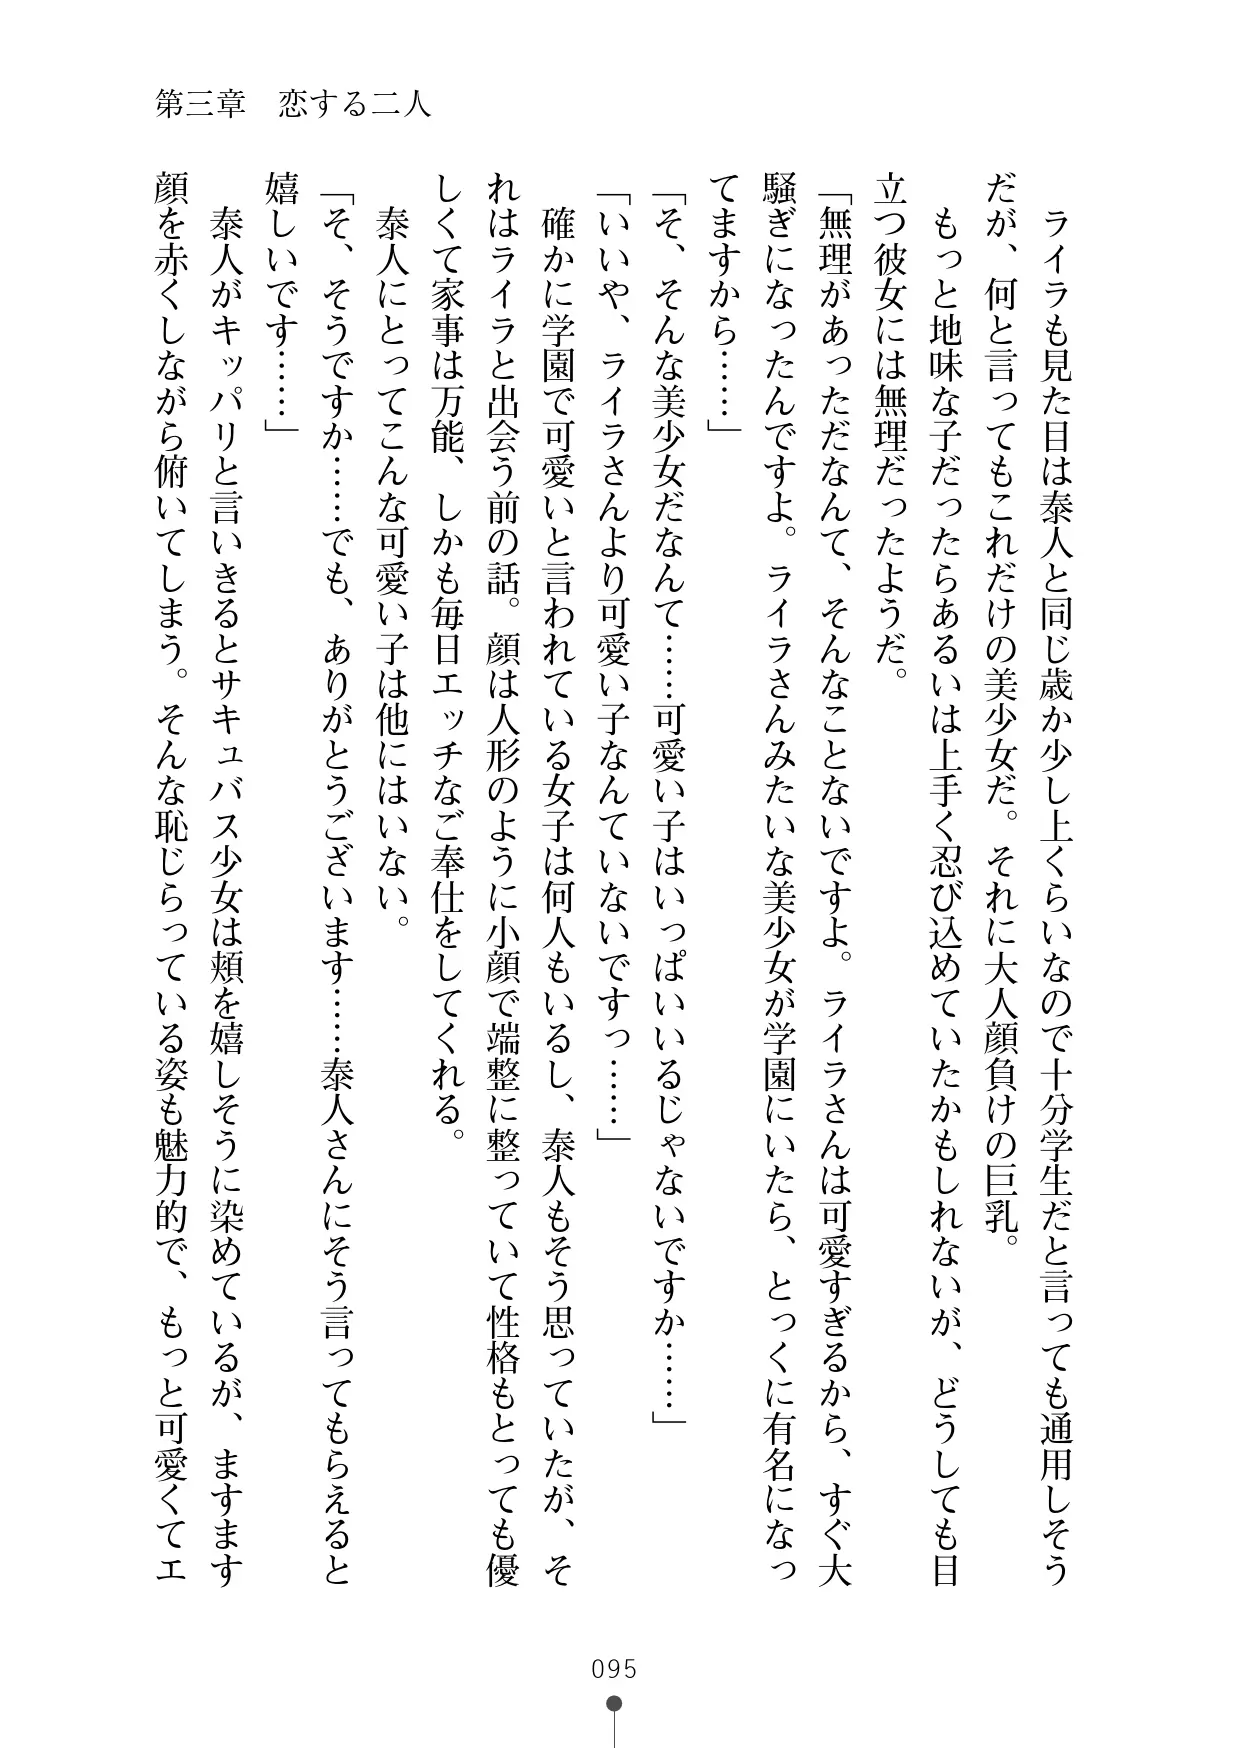 第三章　恋する二人
ライラも見た目は泰人と同じ歳か少し上くらいなので十分学生だと言っても通用しそう
だが、何と言ってもこれだけの美少女だ。それに大人顔負けの巨乳。
もっと地味な子だったらあるいは上手く忍び込めていたかもしれないが、どうしても目
立つ彼女には無理だったようだ。
「無理があっただなんて、そんなことないですよ。ライラさんは可愛すぎるから、すぐ大
騒ぎになったんですよ。ライラさんみたいな美少女が学園にいたら、とっくに有名になっ
てますから……」
「そ、そんな美少女だなんて……可愛い子はいっぱいいるじゃないですか……」
「いいや、ライラさんより可愛い子なんていないですっ……」
確かに学園で可愛いと言われている女子は何人もいるし、泰人もそう思っていたが、そ
れはライラと出会う前の話。顔は人形のように小顔で端整に整っていて性格もとっても優
しくて家事は万能、しかも毎日エッチなご奉仕をしてくれる。
泰人にとってこんな可愛い子は他にはいない。
「そ、そうですか……でも、ありがとうございます……泰人さんにそう言ってもらえると
嬉しいです……」
泰人がキッパリと言いきるとサキュバス少女は頬を嬉しそうに染めているが、ますます
顔を赤くしながら俯いてしまう。そんな恥じらっている姿も魅力的で、もっと可愛くてエ
095